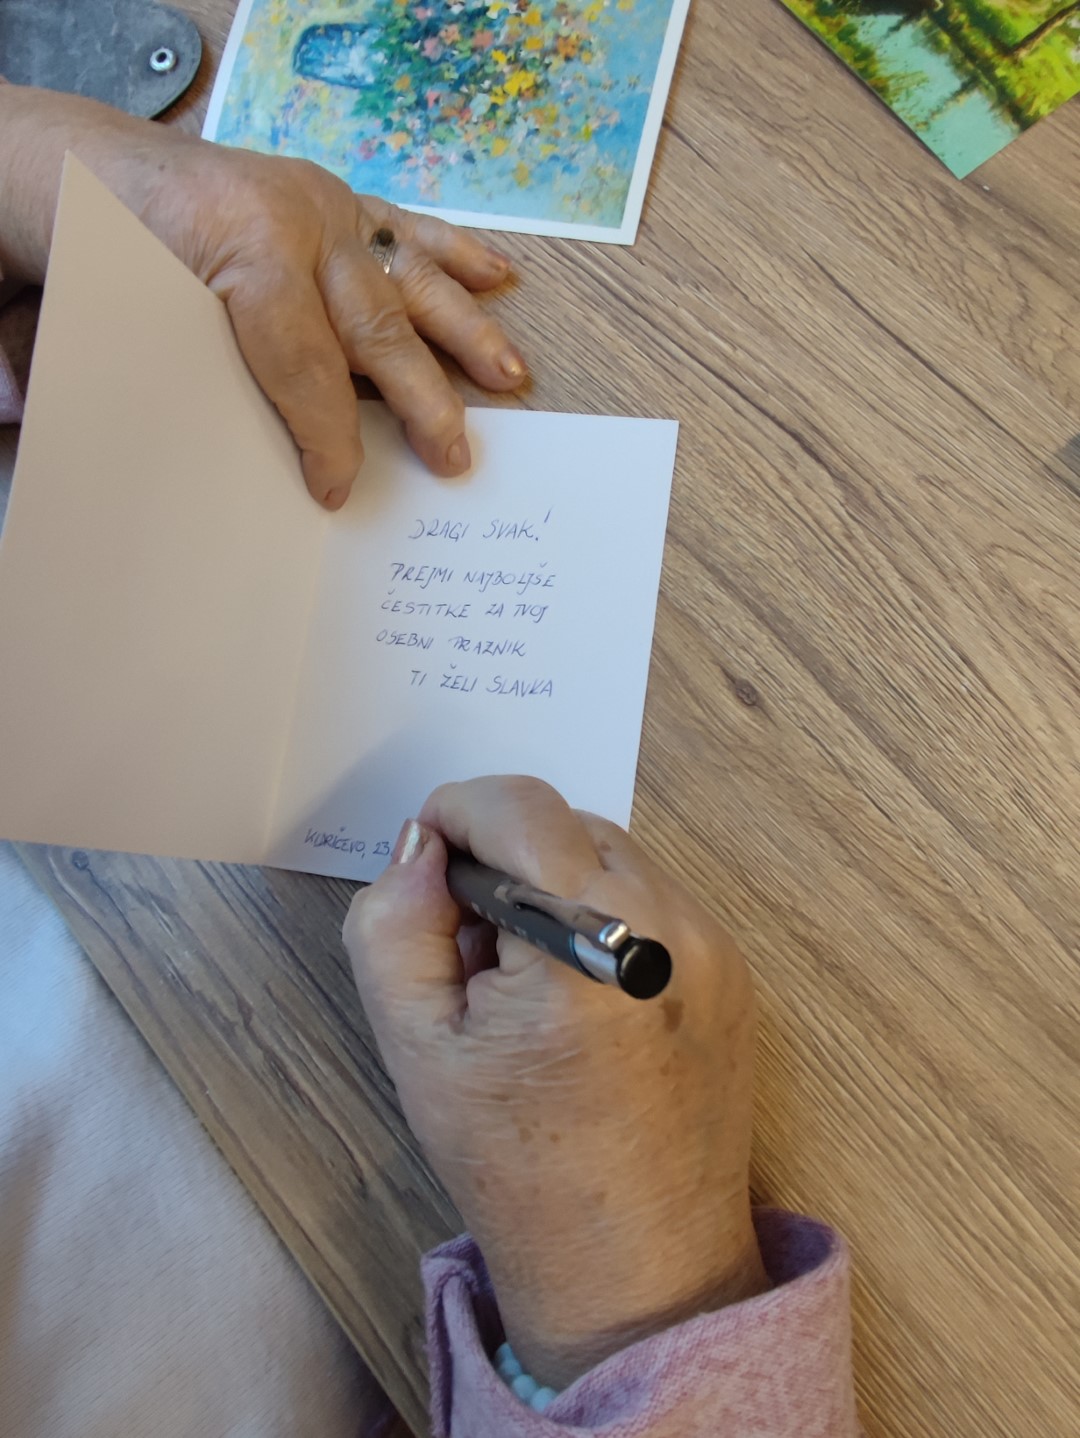 DRAGI SVAK!
PREJMI NAJBOLJŠE
ČESTITKE ZA TVOJ
OSEBNI PRAZNIK
TI ŽELI SLAVKA
KIDRIČEVO, 23.